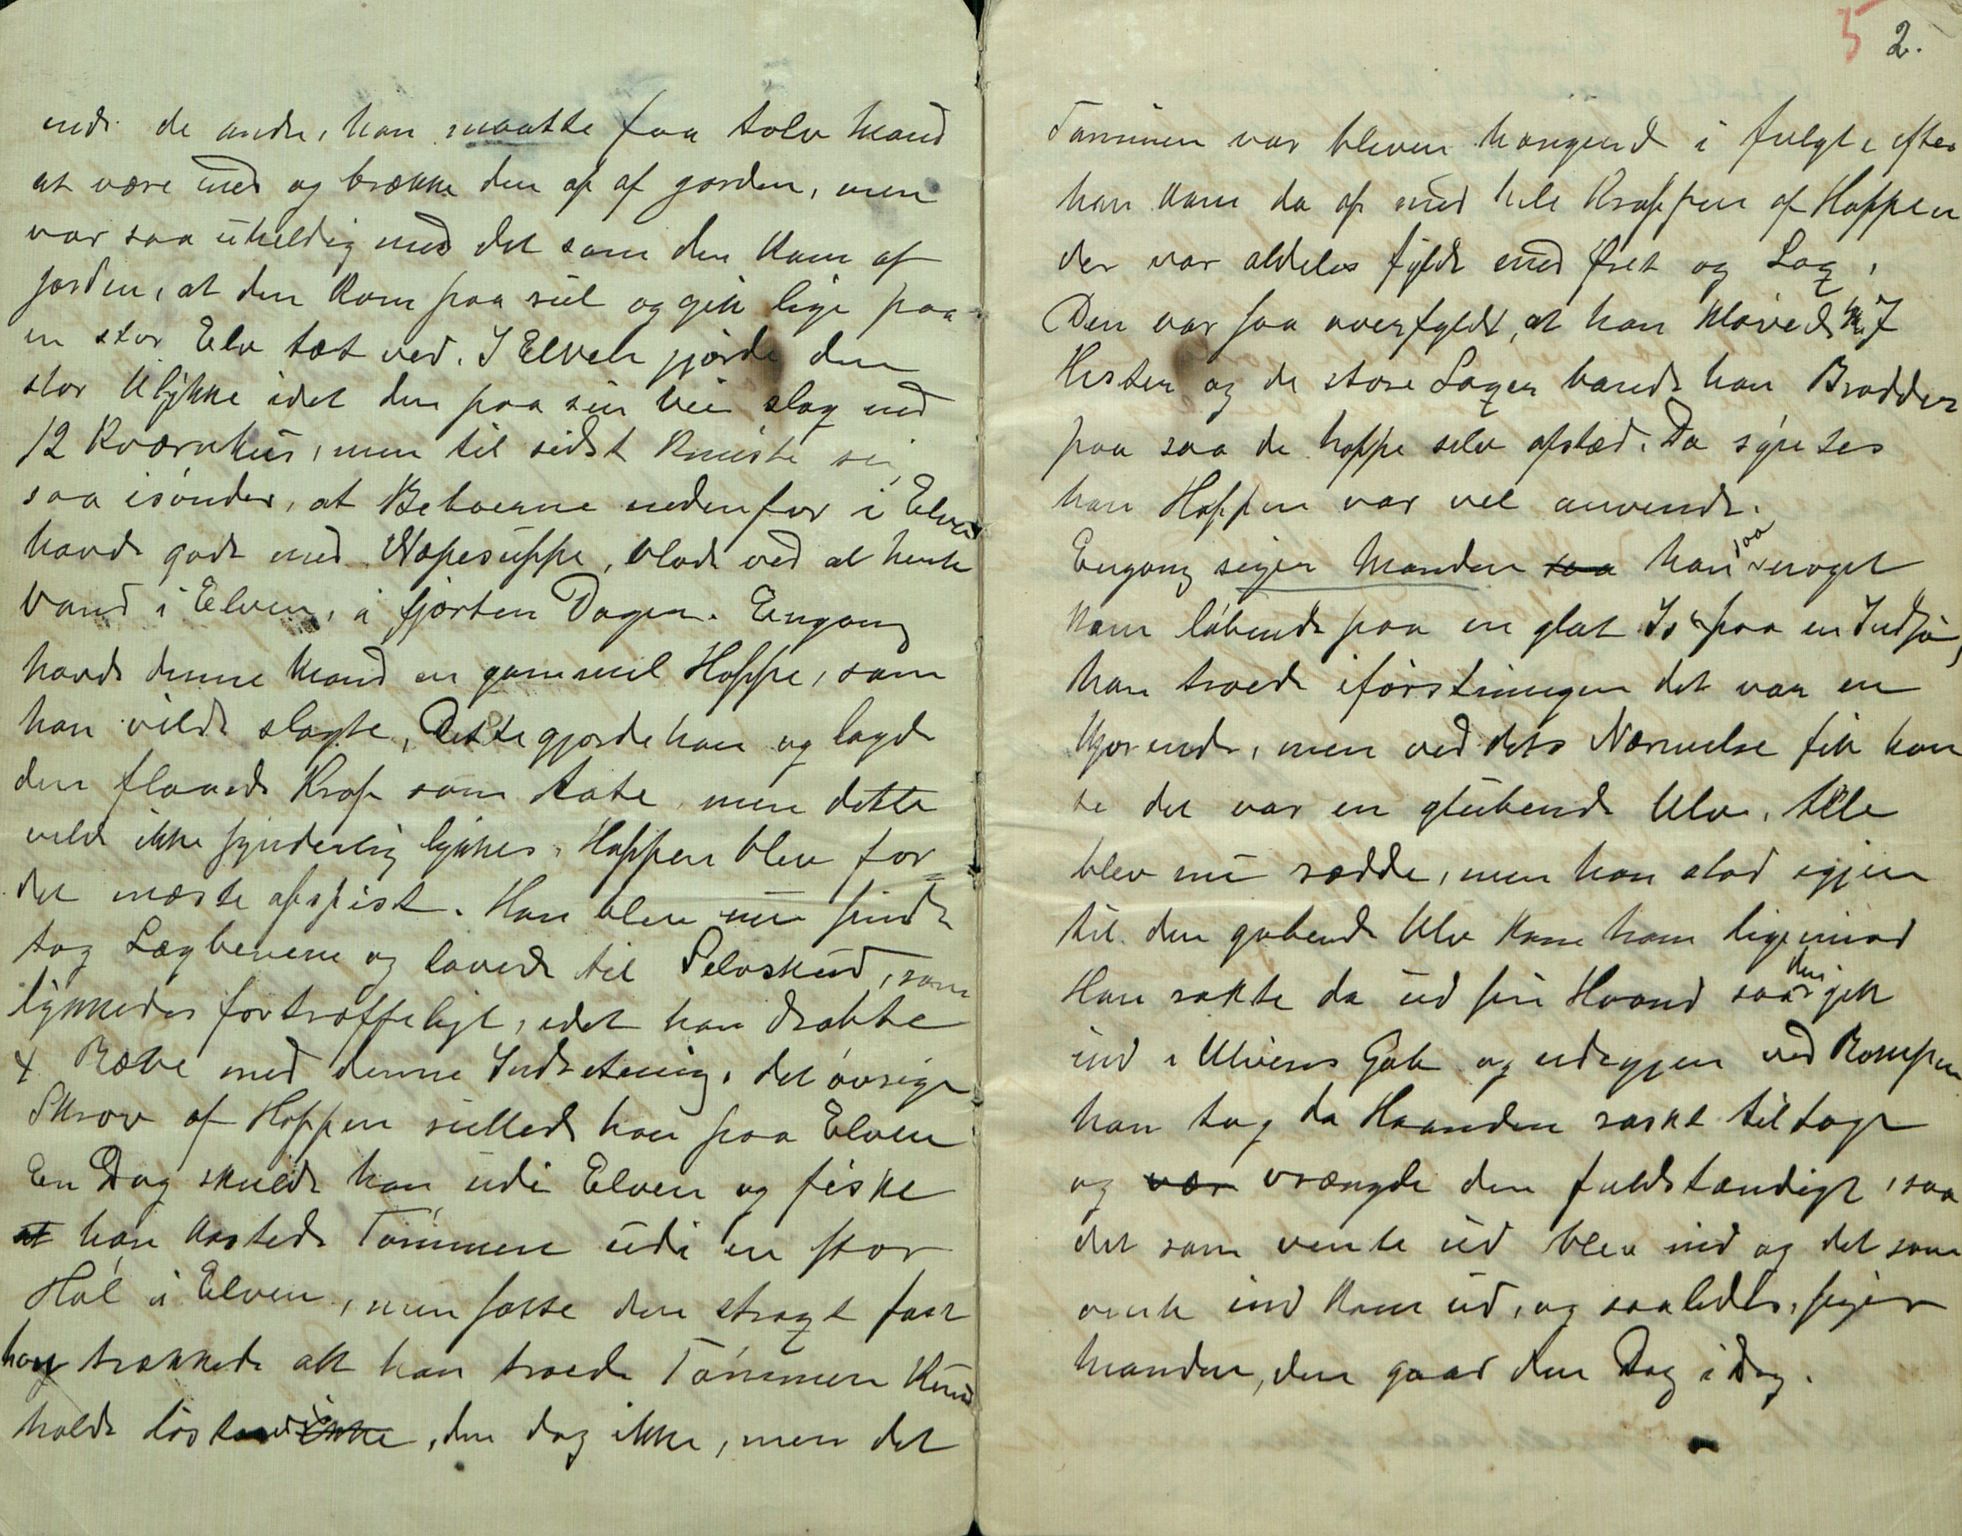 end de andre, han maatte faa tolv Mand
at være med og brække den op af jorden, men
var saa uheldig med det som den kom af
jorden, at den kom paa rul og gik lige paa
en stor Elv tæt ved. I Elven gjorde den
stor Ulykke idet den paa sin Vei slog ned
12 Kværnhus, men til sidst knuste sig
saa isønder, at Beboerne nedenfor i Elven
havde godt med Næpesuppe, blot ved at hente
Vand i Elven, i fjorten Dager. Engang
havde denne Mand en gammel Hoppe, som
han vilde slagte, Dette gjorde han og lagde
den flaaede Krop som Aate, men dette
vilde ikke synderlig lykkes, Hoppen blev for
det meste opspist. Han blev nu sindt
tog Lægbenene og lavede til Selvskud, som
lykkedes fortræffeligt, idet han dræbte
4 Ræve med denne Indretning. det øvrige
Skrov af Hoppen rullede han paa Elven
En Dag skulde han udi Elven og fiske
at han kastede Tømmen udi en stor
Høl i Elven, men satte den stragt fast
han trækkede alt han troede Tømmen kund
holde løs ikke, den dog ikke, men det
5 2.
Tømmen var bleven hængende i fulgte efter
han kom da op med hele Kroppen af Hoppen
der var aldeles fyldt med Øret og Lax,
Den var saa overfyldt, at han kløvede 7
Hester og de store Laxer bandt han Brodder
paa saa de hoppe selv afsted. Da syntes
han Hoppen var vel anvendt.
Engang siger Manden saa han saa noget
kom løbende paa en glat Is paa en Indsjø,
han troede iførstningen det var en
Kjørende, men ved dets Nærmelse fik han
se det var en glubende Ulv. Alle
blev nu rædde, men han stod igjen
til den gabende Ulv kom ham lige imod
Han rakte da ud sin Haand saa den gik
ind i Ulvens Gab og ud igjen ved Rompen
han tog da Haanden raskt tilbage
og vær vrængte den fuldstændigt, saa
det som vente ud blev ind og det som
vente ind kom ud, og saaledes, siger
Manden, den gaar den Dag i Dag.